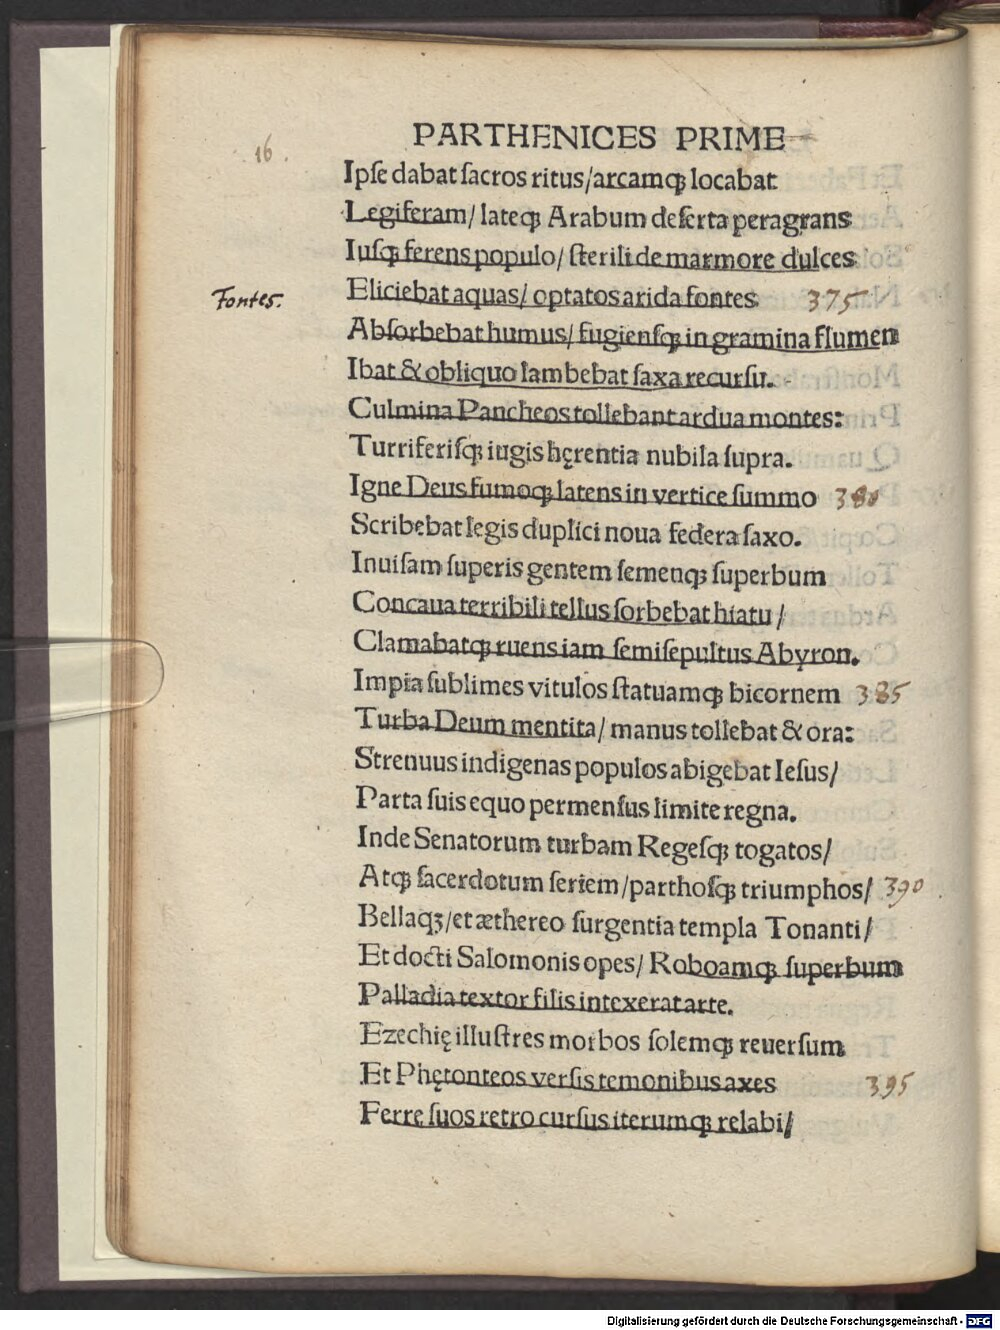 PARTHENICES PRIME
16.
Ipſe dabat ſacros ritus/arcamqꝫ locabat
Legiferam/ lateqꝫ Arabum deſerta peragrans
Iuſqꝫ ferens populo/ ſterili de marmore dulces
Fontes. Eliciebat aquas/ optatos arida fontes 375
Abſorbebat humus/ fugienſqꝫ in gramina flumen
Ibat & obliquo lambebat ſaxa recurſu.
Culmina Pancheos tollebant ardua montes:
Turriferiſqꝫ iugis hęrentia nubila ſupra.
Igne Deus fumoqꝫ latens in vertice ſummo 380
Scribebat legis duplici noua federa ſaxo.
Inuiſam ſuperis gentem ſemenqꝫ ſuperbum
Concaua terribili tellus ſorbebat hiatu/
Clamabatqꝫ ruens iam ſemiſepultus Abyron.
Impia ſublimes vitulos ſtatuamqꝫ bicornem 385
Turba Deum mentita/ manus tollebat & ora:
Strenuus indigenas populos abigebat Ieſus/
Parta ſuis equo permenſus limite regna.
Inde Senatorum turbam Regeſqꝫ togatos/
Atqꝫ ſacerdotum ſeriem/parthoſqꝫ triumphos/ 390
Bellaqꝫ/et æthereo ſurgentia templa Tonanti/
Et docti Salomonis opes/ Roboamqꝫ ſuperbum
Palladia textor filis intexerat arte.
Ezechię illuſtres morbos ſolemqꝫ reuerſum
Et Phętonteos verſis temonibus axes 395
Ferre ſuos retro curſus iterumqꝫ relabi/
Digitalisierung gefördert durch die Deutsche Forschungsgemeinschaft - DFG